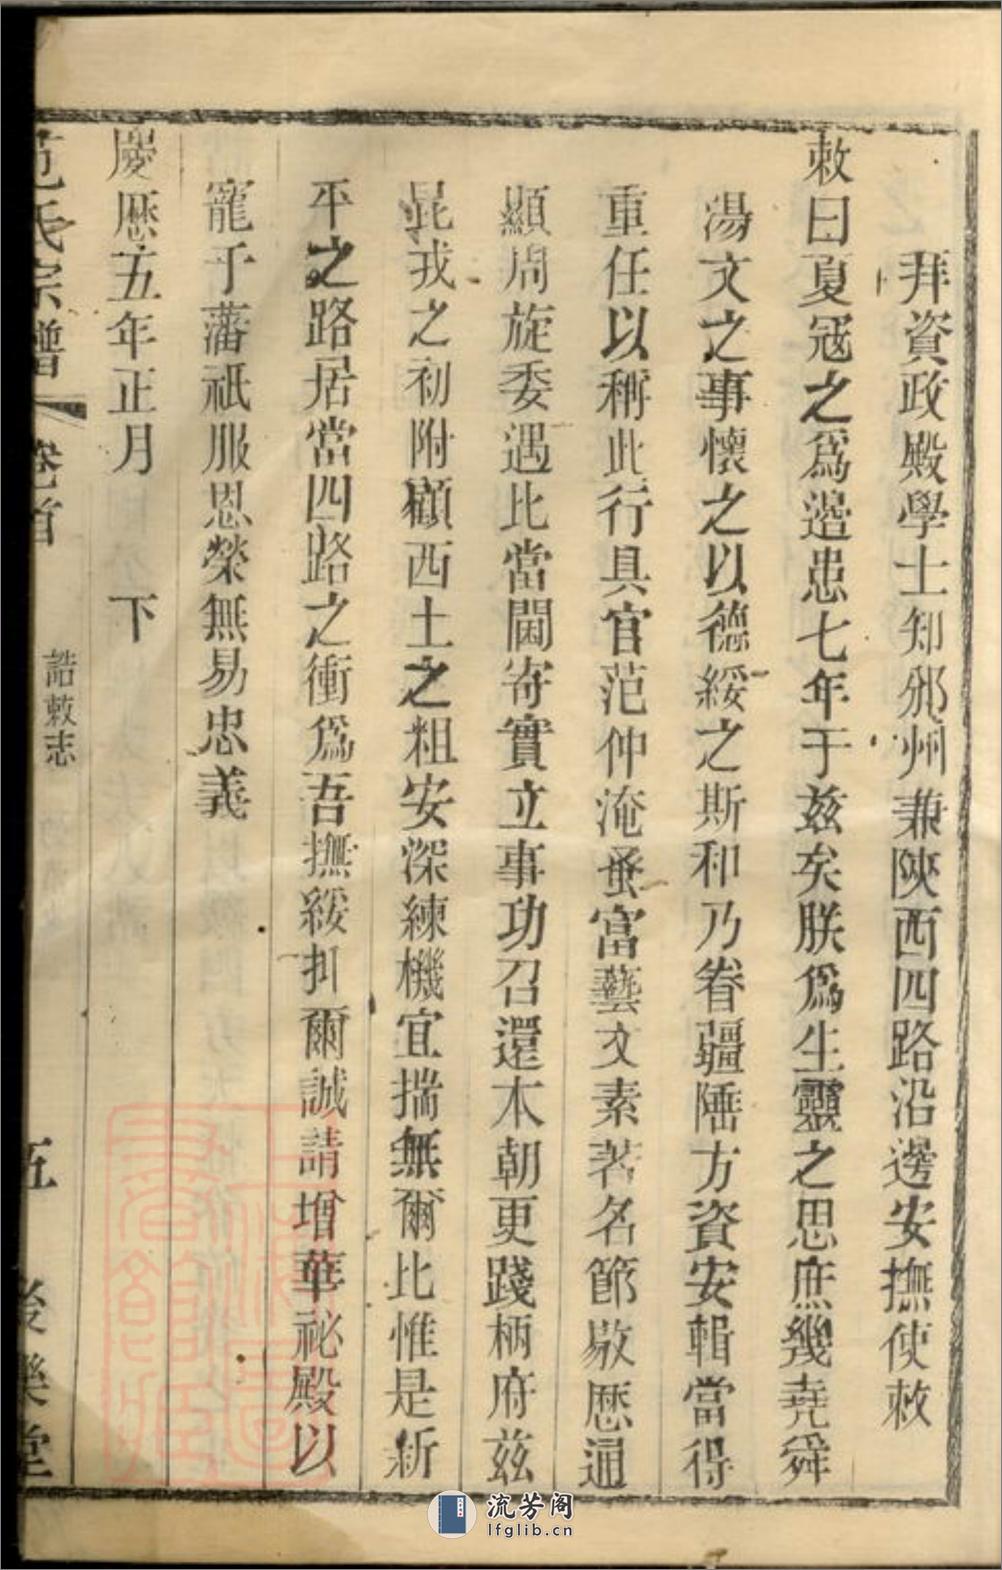 拜資政殿學士知邠州兼陝西四路沿邊安撫使敕
敕曰夏寇之爲邉患七年于茲矣朕爲生靈之思庶幾堯舜
湯文之事懷之以德綏之斯和乃眷疆陲方資安輯當得
重任以稱此行具官范仲淹蚤富藝文素著名節敭歷通
顯周旋委遇比當閫寄實立事功召還本朝更踐柄府茲
昆戎之初附顧西土之粗安深練機宜揣無爾比惟是新
平之路居當四路之衝爲吾撫綏扑爾誠請增華祕殿以
寵于藩祇服恩榮無易忠義
慶歷五年正月 下
范氏宗譜 卷首 誥敕志 五 後樂堂
流芳阁
lfglib.cn